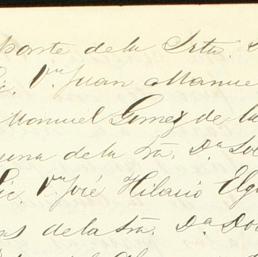 porte de la Srta.
Lic. Dn Juan Manuel
Manuel Gomez de la
una de la Sra. Da
Lic. Dn José Hilario Elg
as de la Sra. Da Do